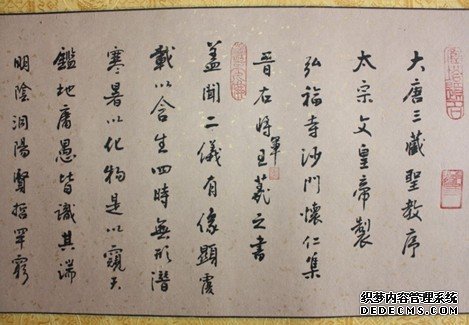 大唐三藏聖教序
太宗文皇帝製
弘福寺沙門懷仁集
晉右將軍王羲之書
蓋聞二儀有像顯覆
載以含生四時無形潛
寒暑以化物是以窺天
鑑地庸愚皆識其端
明陰洞陽賢哲罕窮
织梦内容管理系统
DEDECMS.COM